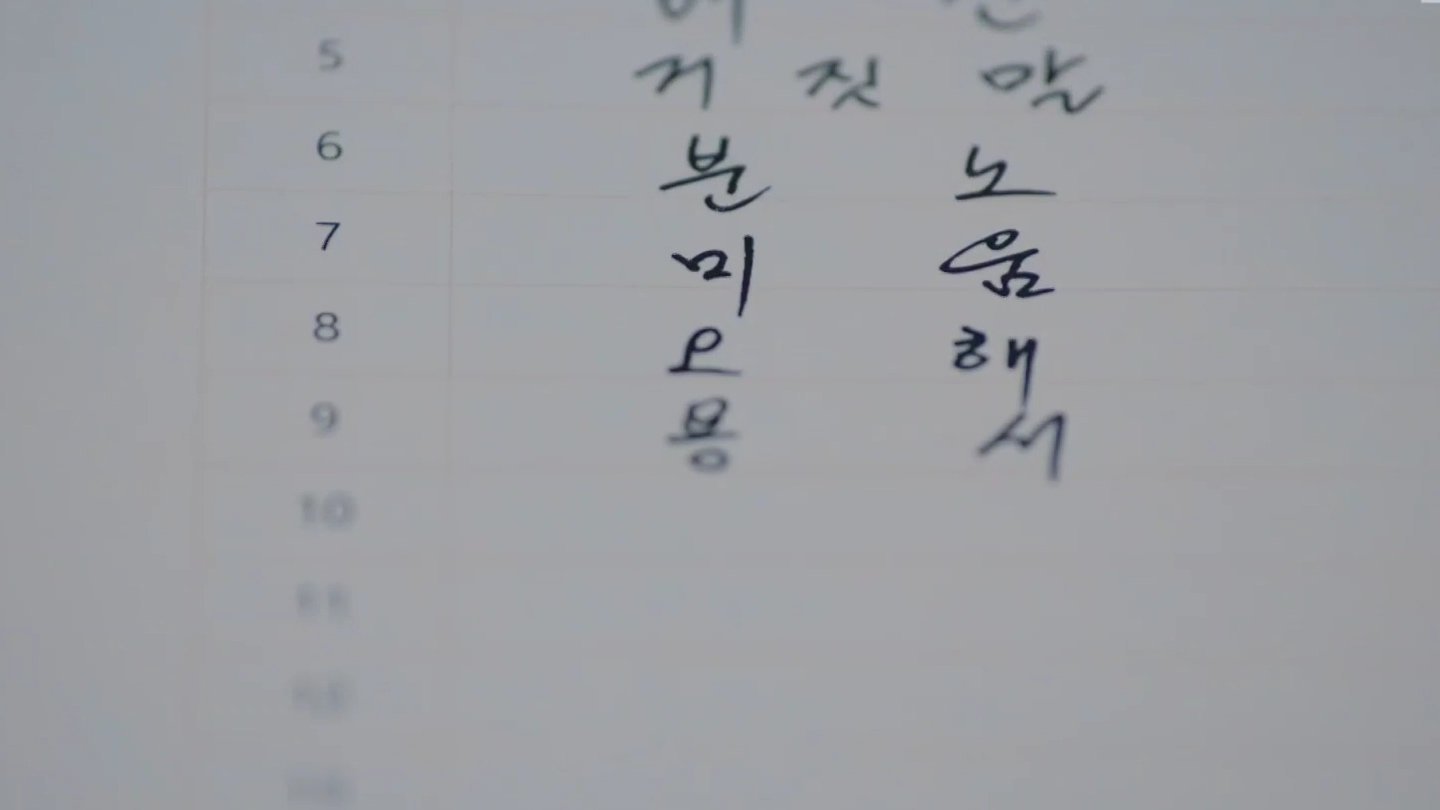 5 거 짓 말
6 분 노
7 미 움
8 오 해
9 용 서
10
11
12